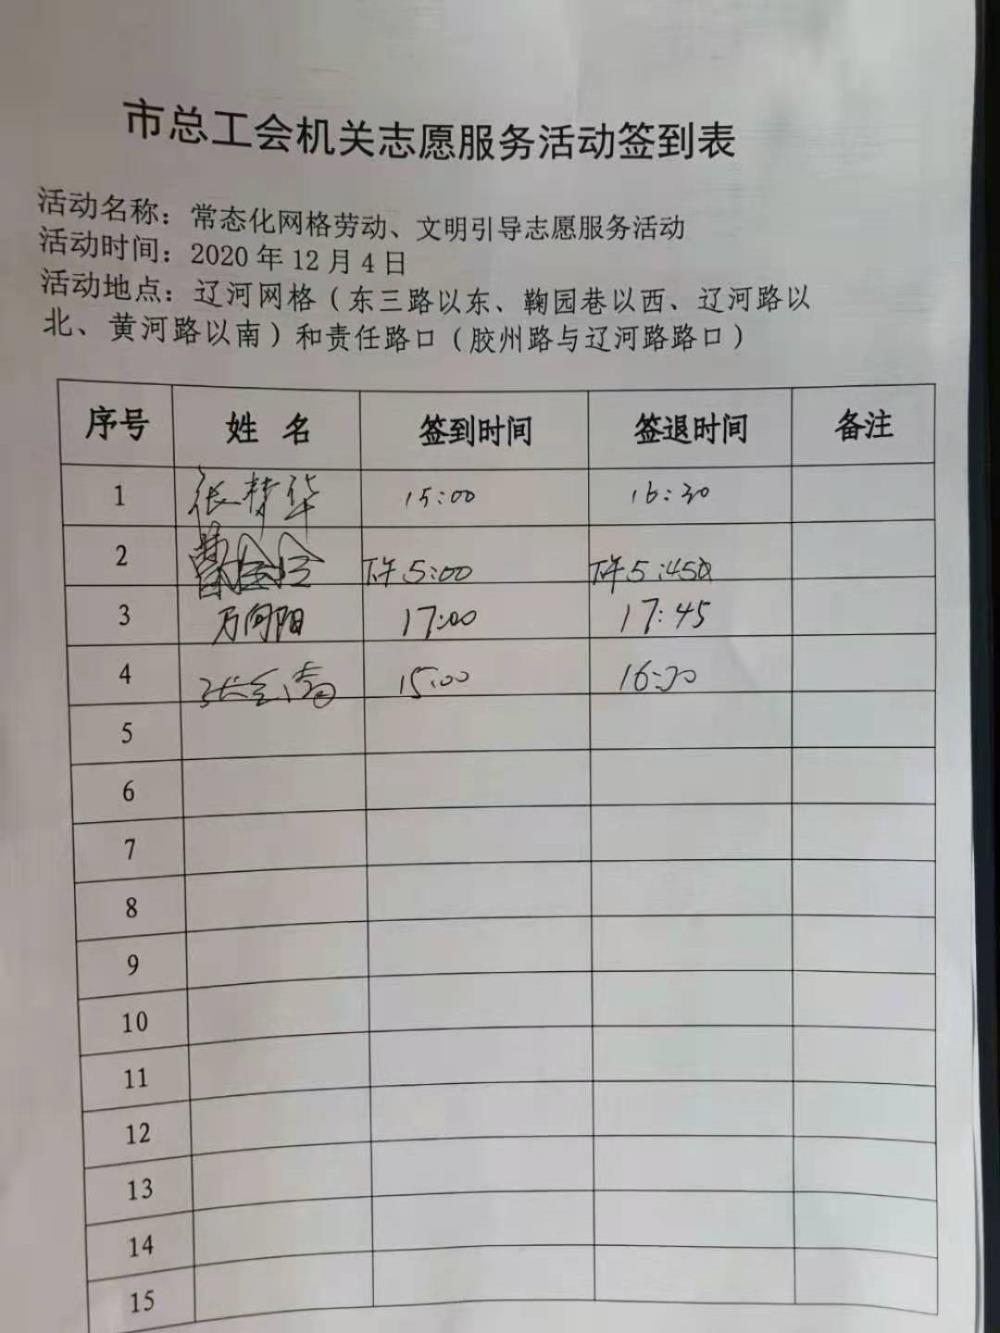 市总工会机关志愿服务活动签到表
活动名称：常态化网格劳动、文明引导志愿服务活动
活动时间：2020年12月4日
活动地点：辽河网格（东三路以东、鞠园巷以西、辽河路以
北、黄河路以南）和责任路口（胶州路与辽河路路口）
序号 姓 名 签到时间 签退时间 备注
1 张梦华 15:00 16:30
2 下午5:00 下午5:45
3 万向阳 17:00 17:45
4 15:00 16:30
5
6
7
8
9
10
11
12
13
14
15